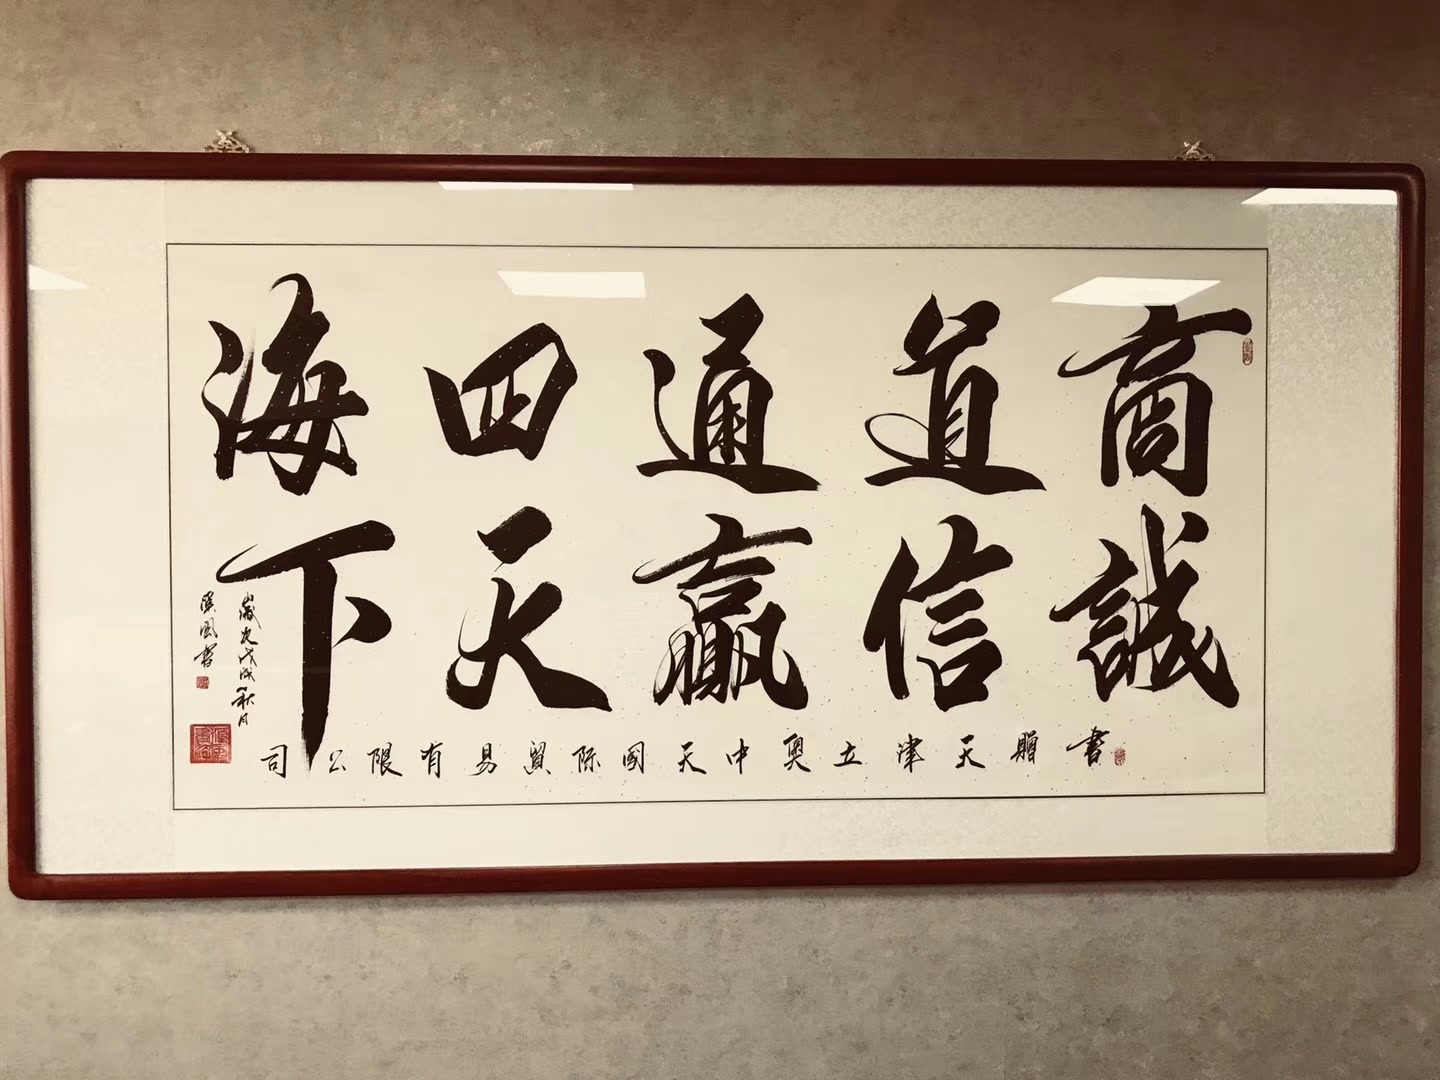 商道通四海
誠信贏天下
書贈天津立奥中天國际貿易有限公司
歲次戊戌秋月
風書